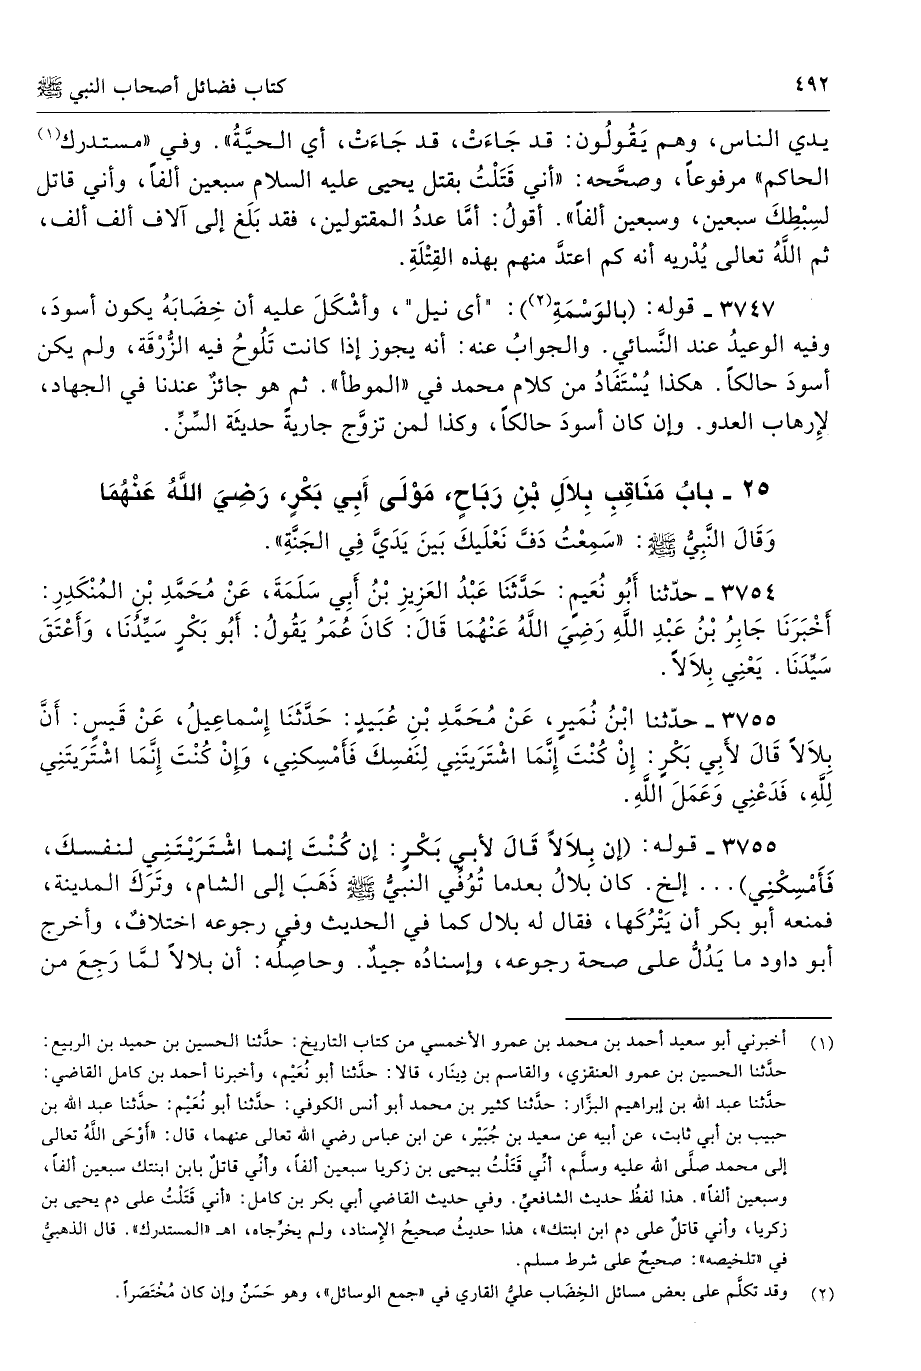 ٤٩٢ كتاب فضائل أصحاب النبي ﷺ
يدي الناس، وهم يَقُولُون: قد جَاءَتْ، قد جَاءَتْ، أي الحيَّةُ». وفي «مستدرك(١)
الحاكم» مرفوعاً، وصحَّحه: «أني قَتَلْتُ بقتل يحيى عليه السلام سبعين ألفاً، وأني قاتل
لسِبْطِكَ سبعين، وسبعين ألفاً». أقولُ: أمَّا عددُ المقتولين، فقد بَلَغ إلى آلاف ألف ألف،
ثم اللَّهُ تعالى يُدْريه أنه كم اعتدَّ منهم بهذه القِتْلَةِ.
٣٧٤٧ ـ قوله: (بالوَسْمَةِ(٢)): "أى نيل"، وأشْكَلَ عليه أن خِضَابَهُ يكون أسودَ،
وفيه الوعيدُ عند النَّسائي. والجوابُ عنه: أنه يجوز إذا كانت تَلُوحُ فيه الزُّرْقَة، ولم يكن
أسودَ حالكاً. هكذا يُسْتَفَادُ من كلام محمد في «الموطأ». ثم هو جائزٌ عندنا في الجهاد،
لإِرهاب العدو. وإن كان أسودَ حالكاً، وكذا لمن تزوَّج جاريةً حديثَة السِّنِّ.
٢٥ ـ بابُ مَنَاقِبِ بِلاَلِ بْنِ رَبَاحٍ، مَوْلَى أَبِي بَكْرٍ، رَضِيَ اللَّهُ عَنْهُمَا
وَقَالَ النَّبِيُّ ﷺ: «سَمِعْتُ دَفَّ نَعْلَيكَ بَينَ يَدَيَّ فِي الجَنَّةِ».
٣٧٥٤ ـ حدّثنا أَبُو نُعَيمٍ: حَدَّثَنَا عَبْدُ العَزِيزِ بْنُ أَبِي سَلَمَةَ، عَنْ مُحَمَّدِ بْنِ المُنْكَدِرِ:
أَخْبَرَنَا جَابِرُ بْنُ عَبْدِ اللَّهِ رَضِيَ اللَّهُ عَنْهُمَا قَالَ: كَانَ عُمَرُ يَقُولُ: أَبُو بَكْرٍ سَيِّدُنَا، وَأَعْتَقَ
سَيِّدَنَا. يَعْنِي بِلاَلاً.
٣٧٥٥ ـ حدّثنا ابْنُ نُمَيرٍ، عَنْ مُحَمَّدِ بْنِ عُبَيدٍ: حَدَّثَنَا إِسْماعِيلُ، عَنْ قَيسٍ: أَنَّ
بِلاَلاً قَالَ لأَبِي بَكْرٍ: إِنْ كُنْتَ إِنَّمَا اشْتَرَيتَنِي لِنَفسِكَ فَأَمْسِكنِي، وَإِنْ كُنْتَ إِنَّمَا اشْتَرَيتَنِي
لِلَّهِ، فَدَعْنِي وَعَمَلَ اللَّهِ.
٣٧٥٥ ـ قوله: (إن بِلاَلاً قَالَ لأبي بَكْرٍ: إن كُنْتَ إنما اشْتَرَيْتَنِي لنفسكَ،
فَأَمْسِكْنِي)... إلخ. كان بلالُ بعدما تُوُفِّي النبيُّ ﷺ ذَهَبَ إلى الشام، وتَرَكَ المدينة،
فمنعه أبو بكر أن يَتْرُكَها، فقال له بلال كما في الحديث وفي رجوعه اختلافٌ، وأخرج
أبو داود ما يَدُلُّ على صحة رجوعه، وإسنادُه جيدٌ. وحاصِلُه: أن بلالاً لمَّا رَجِعَ من
(١) أخبرني أبو سعيد أحمد بن محمد بن عمرو الأخمسي من كتاب التاريخ: حدَّثنا الحسين بن حميد بن الربيع:
حدَّثنا الحسين بن عمرو العنقزي، والقاسم بن دِينَار، قالا: حدَّثنا أبو نُعَيْم، وأخبرنا أحمد بن كامل القاضي:
حدَّثنا عبد الله بن إبراهيم البزَّار: حدَّثنا كثير بن محمد أبو أنس الكوفي: حدَّثنا أبو نُعَيْم: حدَّثنا عبد الله بن
حبيب بن أبي ثابت، عن أبيه عن سعيد بن جُبَيْر، عن ابن عباس رضي الله تعالى عنهما، قال: «أَوْحَى اللَّهُ تعالى
إلى محمد صلَّى الله عليه وسلَّم، أنِّي قَتَلْتُ بيحيى بن زكريا سبعين ألفاً، وأنِّي قاتلٌ بابن ابنتك سبعين ألفاً،
وسبعين ألفاً». هذا لفظُ حديث الشافعيِّ. وفي حديث القاضي أبي بكر بن كامل: «أني قَتَلْتُ على دم يحيى بن
زكريا، وأني قاتلٌ على دم ابن ابنتك»، هذا حديثُ صحيحُ الإِسناد، ولم يخرِّجاه، اهـ «المستدرك». قال الذهبيُّ
في «تلخيصه»: صحيحٌ على شرط مسلم.
(٢) وقد تكلَّم على بعض مسائل الخِضَاب عليُّ القاري في «جمع الوسائل»، وهو حَسَنٌ وإن كان مُخْتَصَراً.